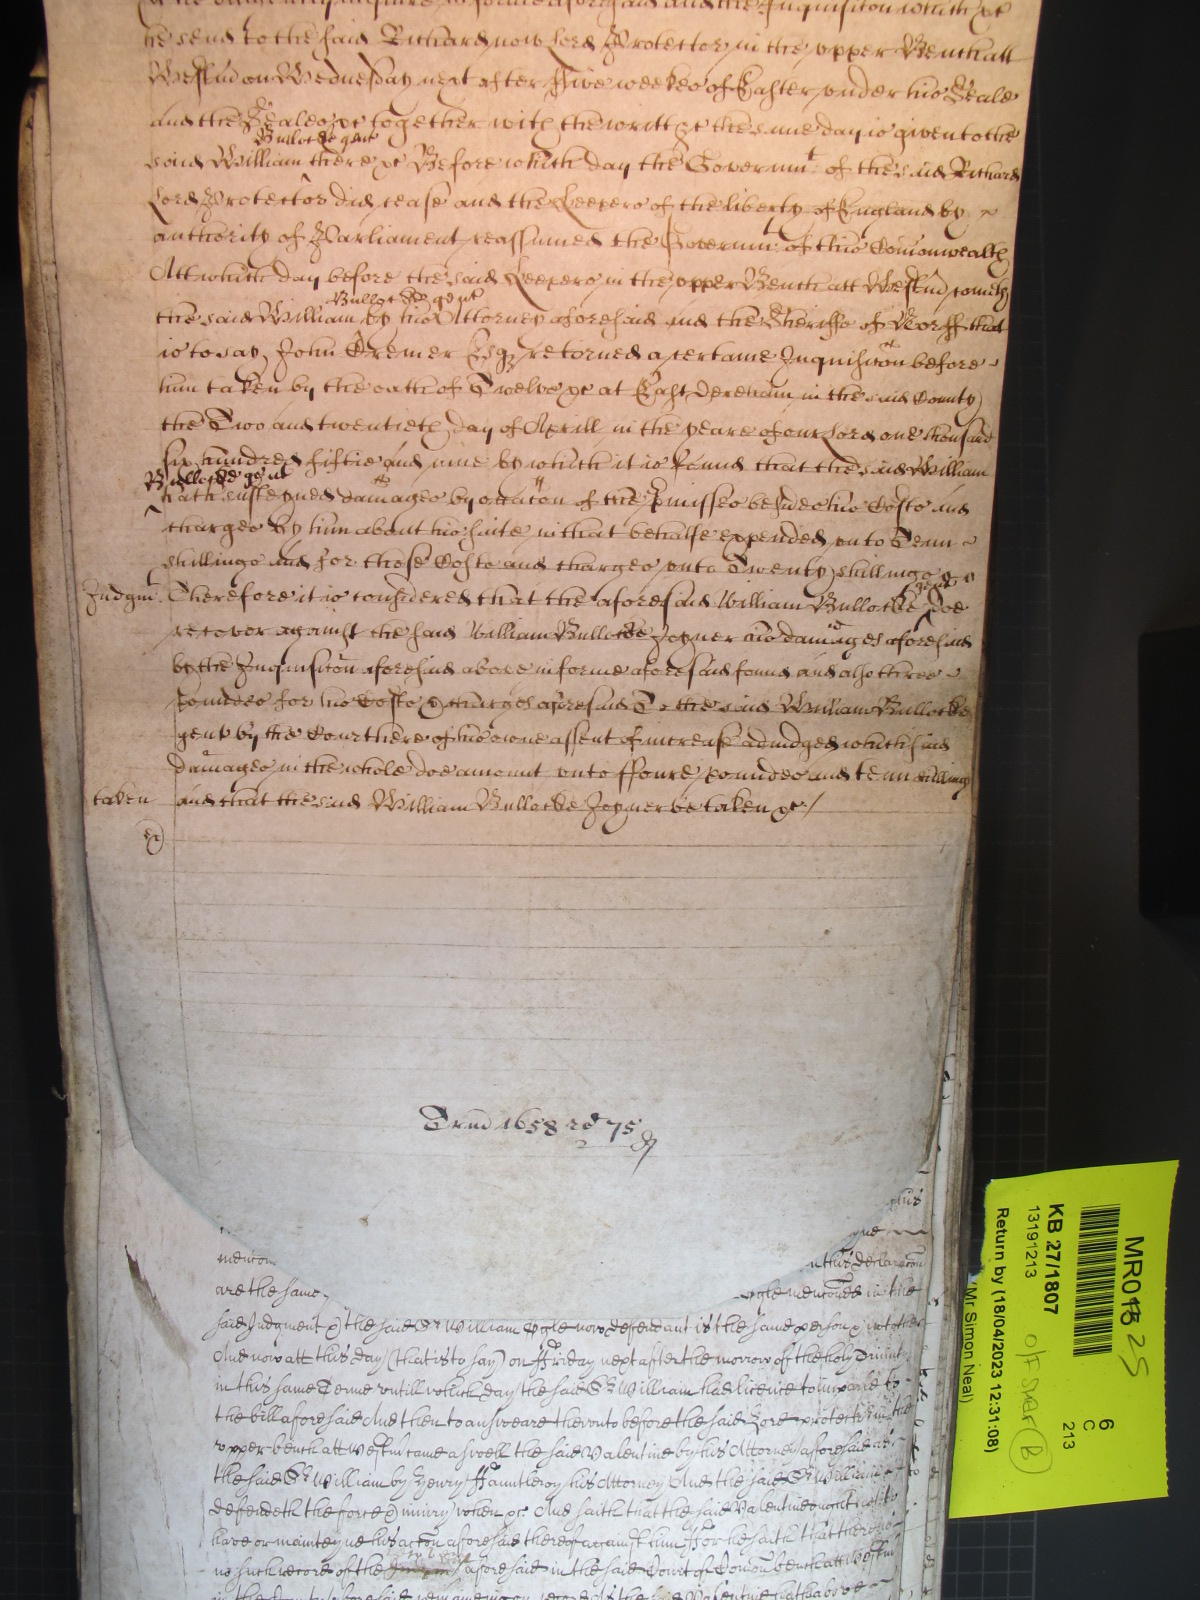 he send to the said Richard now Lord Protector in the upper Bench att
Westm̄ on Wednesday next after ffive weekes of Easter under his Seale
and the Seales &c together with the writt &c the same day is given to the
Bullocke gent
said William there &c Before which day the Governmt of the said Richard
Lord Protector did cease and the Keepers of the liberty of England by
authority of Parliament reassumed the Governmt of this Comonwealth
Att which day before the said Keepers in the upper Bench att Westm̄ cometh
Bullocke gent
the said William by his Attorney aforesaid and the Sheriffe of Norff that
is to say John Cremer Esqr returned a certaine Inquisicōn before
him taken by the oath of Twelve &c at East Dereham in the said County
the Two and twentieth day of Aprill in the yeare of our Lord one thousand
six hundred fiftie and nine by which it is found that the said William
Bullocke gent
hath susteyned damages by occacōn of the p̱misses besides his Costs and
charges by him about his suite in that behalfe expended unto Tenn
shillings and for those Costs and charges unto Twenty shillings
Judgmt Therefore it is considered that the aforesaid William Bullocke gent doe
recover against the said William Bullocke Joyner his damages aforesaid
by the Inquisicōn aforesaid above in forme aforesaid found and also three
poundes for his Costs & charges aforesaid To the said William Bullocke
gent by the Court here of his owne assent of increase adiudged which said
damages in the whole doe amount unto ffoure poundes and tenn shillings
taken and that the said William Bullocke Joyner be taken &c/
Trin 1658 ro 75
mencon
this declaracōn
are the same
Ogle menconed in the
said Judgment & the said Sr William Ogle now defendant is the same person & not other
And now att this day (that is to say) on ffriday next after the morrow of the holy Trinity
in this same Terme untill which day the said Sr William had licence to imparle to
the bill aforesaid And then to answeare thereunto before the said Lord Protector in the
upper bench att Westm̄ came aswell the said Valentine by his Attorney aforesaid as
the said Sr William by Henry ffauntleroy his Attorney And the said Sr William
defendeth the force & iniury when &c And saith that the said Valentine ought not to
have or mainteyne his accōn aforesaid thereof against him ffor he saith that there is
no such record of the aforesaid in the said Court of Comon bench att Westm̄
MR018 25
6
C
213
KB 27/1807
13191213
Off Sher (B)
Return by (18/04/2023 12:31:08)
(Mr Simon Neal)